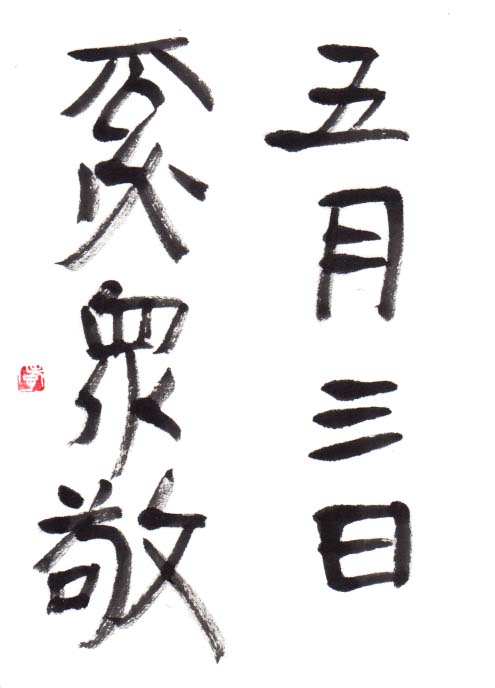 五月三日
衆敬